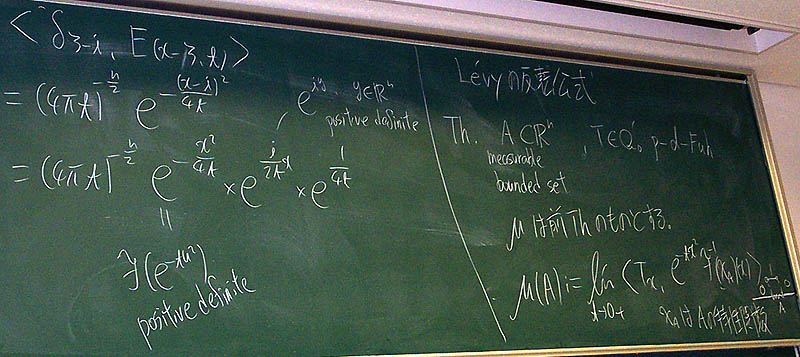 < δ_{z-i}, E(x-z, t) >
= (4πt)^{-n/2} e^{-(x-i)^2/4t}
, e^{iy}, y∈R^n
positive definite
= (4πt)^{-n/2} e^{-x^2/4t} × e^{i/2t x} × e^{1/4t}
||
F(e^{-tu^2})
positive definite
Lévyの反転公式
Th. A⊂R^n , T∈Q', p-d-Fuh
measurable
bounded set
μは前Thのものとする。
μ(A) := lim_{t→0+} < T_x, e^{-tx^2} F^{-1}(χ_A)(x) >
χ_AはAの特性関数
A